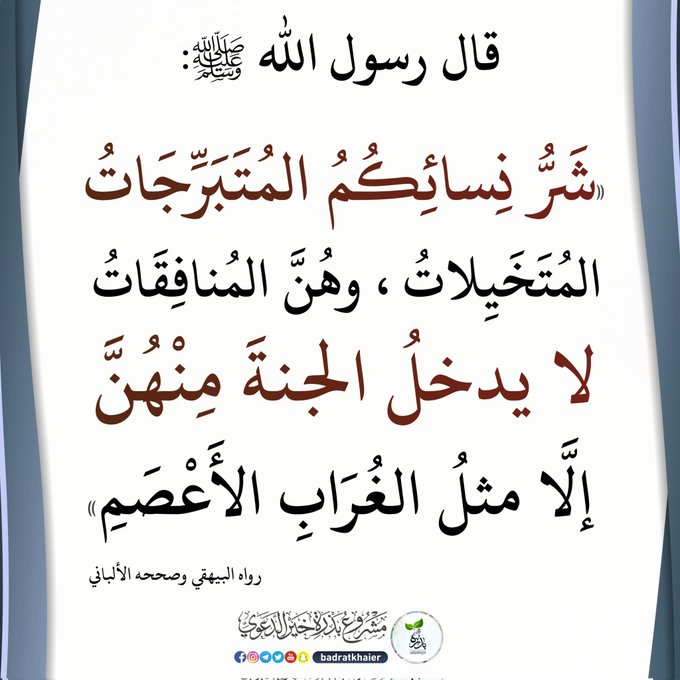 قال رسول الله ﷺ:
«شَرُّ نِسائِكُمُ المُتَبَرِّجَاتُ
المُتَخَيِلاتُ ، وهُنَّ المُنافِقَاتُ
لا يدخلُ الجنةَ مِنْهُنَّ
إلَّا مثلُ الغُرَابِ الأَعْصَمِ»
رواه البيهقي وصححه الألباني
مشروع بذرة خير الدعوي
بذرة
badratkhaier